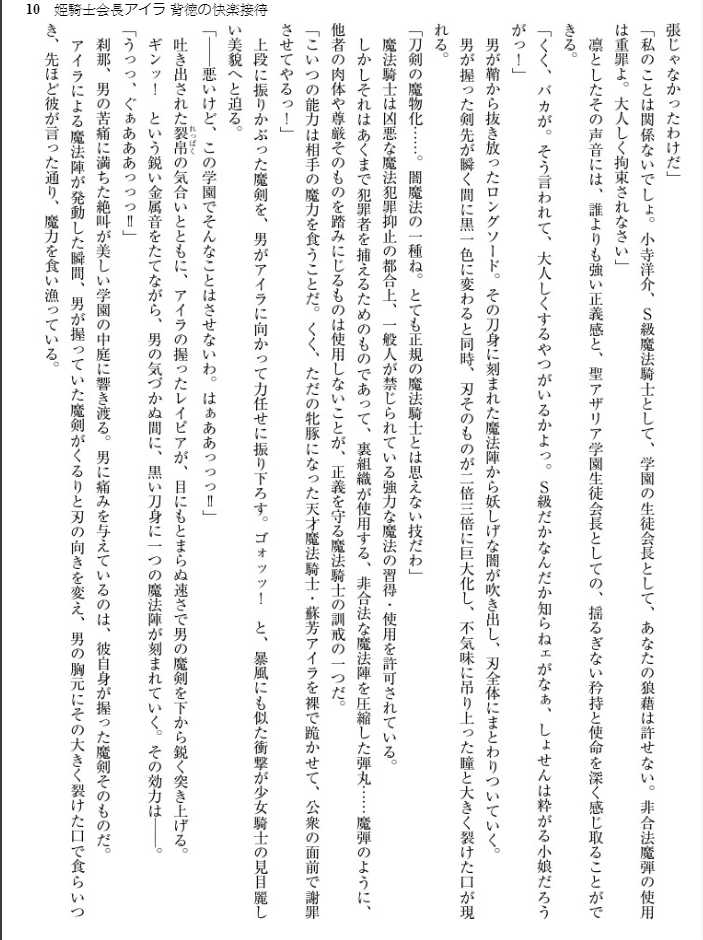 10 姫騎士会長アイラ 背徳の快楽接待
張じゃなかったわけだ」
「私のことは関係ないでしょ。小寺洋介、Ｓ級魔法騎士として、学園の生徒会長として、あなたの狼藉は許せない。非合法魔弾の使用
は重罪よ。大人しく拘束されなさい」
凛としたその声音には、誰よりも強い正義感と、聖アザリア学園生徒会長としての、揺るぎない矜持と使命を深く感じ取ることがで
きる。
「くく、バカが。そう言われて、大人しくするやつがいるかよっ。Ｓ級だかなんだか知らねェがなぁ、しょせんは粋がる小娘だろう
がっ！」
男が鞘から抜き放ったロングソード。その刀身に刻まれた魔法陣から妖しげな闇が吹き出し、刃全体にまとわりついていく。
男が握った剣先が瞬く間に黒一色に変わると同時、刃そのものが二倍三倍に巨大化し、不気味に吊り上った瞳と大きく裂けた口が現
れる。
「刀剣の魔物化……。闇魔法の一種ね。とても正規の魔法騎士とは思えない技だわ」
魔法騎士は凶悪な魔法犯罪抑止の都合上、一般人が禁じられている強力な魔法の習得・使用を許可されている。
しかしそれはあくまで犯罪者を捕えるためのものであって、裏組織が使用する、非合法な魔法陣を圧縮した弾丸……魔弾のように、
他者の肉体や尊厳そのものを踏みにじるものは使用しないことが、正義を守る魔法騎士の訓戒の一つだ。
「こいつの能力は相手の魔力を食うことだ。くく、ただの牝豚になった天才魔法騎士・蘇芳アイラを裸で跪かせて、公衆の面前で謝罪
させてやるっ！」
上段に振りかぶった魔剣を、男がアイラに向かって力任せに振り下ろす。ゴォッッ！　と、暴風にも似た衝撃が少女騎士の見目麗し
い美貌へと迫る。
「――悪いけど、この学園でそんなことはさせないわ。はぁああっっっ‼」
吐き出された裂帛れっぱくの気合いとともに、アイラの握ったレイピアが、目にもとまらぬ速さで男の魔剣を下から鋭く突き上げる。
ギンッ！　という鋭い金属音をたてながら、男の気づかぬ間に、黒い刀身に一つの魔法陣が刻まれていく。その効力は――。
「うっっ、ぐぁあああっっっ‼」
刹那、男の苦痛に満ちた絶叫が美しい学園の中庭に響き渡る。男に痛みを与えているのは、彼自身が握った魔剣そのものだ。
アイラによる魔法陣が発動した瞬間、男が握っていた魔剣がくるりと刃の向きを変え、男の胸元にその大きく裂けた口で食らいつ
き、先ほど彼が言った通り、魔力を食い漁っている。